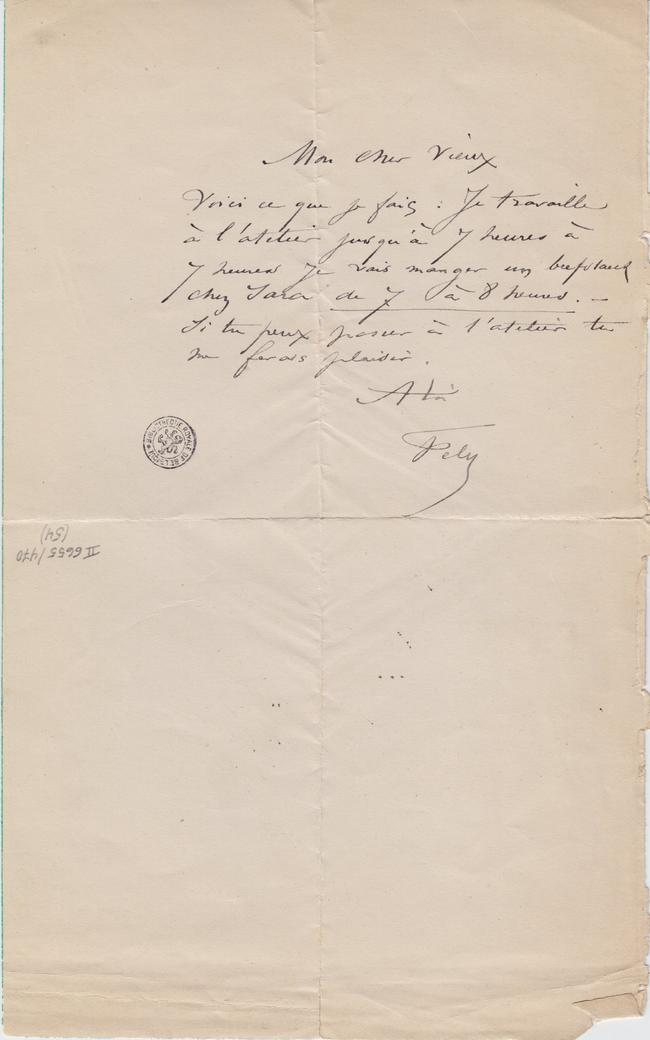 Mon cher Vieux
Voici ce que je fais : Je travaille
à l'atelier jusqu'à 7 heures à
7 heures Je vais manger un
chez de 7 à 8 heures. —
Si tu peux passer à l'atelier tu
me ferais plaisir.
A toi
Fély
BIBLIOTHÈQUE ROYALE DE BELGIQUE
II 6655/470
(54)